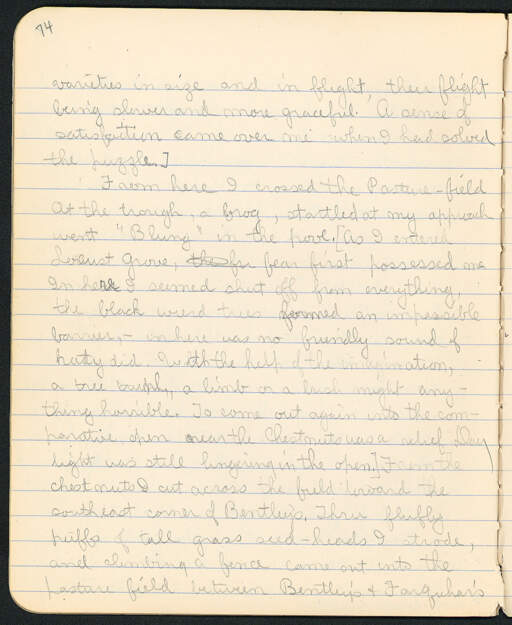 74
varieties in size and in flight, their flight
being slower and more graceful. A sense of
satisfaction came over me when I had solved
the puzzle.]
From here I crossed the Pasture-field
At the trough, a frog, startled at my approach
went "Blung" in the pool. [As I entered
Locust Grove, fear first possessed me
In here I seemed shut off from everything,
the black weird trees formed an impassible
barrier, - in here was no friendly sound of
katty did. With the help of the imagination,
a tree, a limb or a bush might any-
thing horrible. To come out again into the com-
parative open near the Chestnuts was a relief. Day
light was still lingering in the open.] From the
chestnuts I cut across the field toward the
southeast corner of Bentleys. Thru fluffy
puffs of tall grass seed-heads I strode,
and climbing a fence came out into the
pasture field between Bentley's & Farquhar's